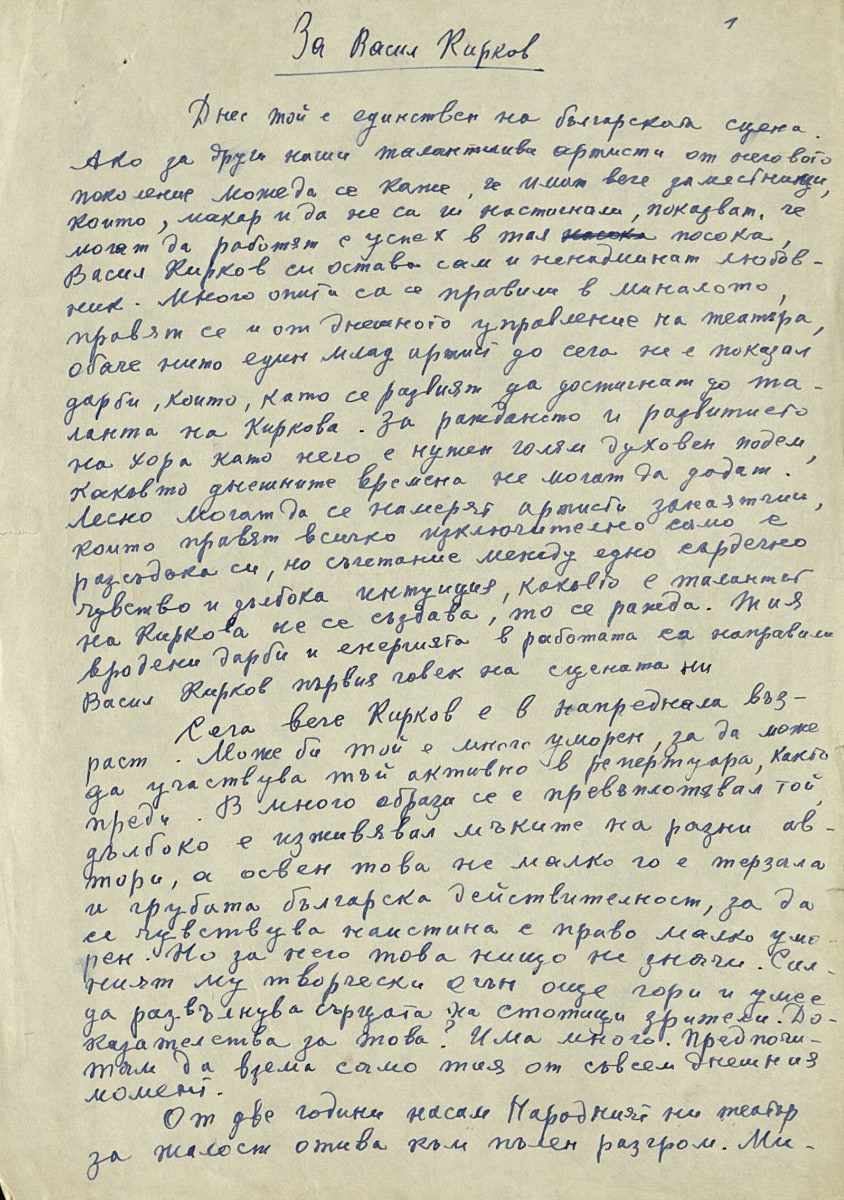 1
За Васил Кирков
Днес той е единствен на българската сцена.
Ако за други наши талантливи артисти от неговото
поколение може да се каже, че имат вече заместници,
които, макар и да не са ги настигнали, показват, че
могат да работят с успех в тая посока посока,
Васил Кирков си остава сам и ненадминат любов-
ник. Много опити са се правили в миналото,
правят се и от днешното управление на театъра,
обаче нито един млад артист до сега не е показал
дарби, които, като се развият да достигнат до та-
ланта на Киркова. За раждането и развитието
на хора като него е нужен голям духовен подем,
какъвто днешните времена не могат да дадат.
Лесно могат да се намерят артисти занаятчии,
които правят всичко изключително само с
разсъдъка си, но съчетание между едно сърдечно
чувство и дълбока интуиция, каквато е талантът
на Киркова не се създава, то се ражда. Тия
вродени дарби и енергията в работата са направили
Васил Кирков първия човек на сцената ни
Сега вече Кирков е в напреднала въз-
раст. Може би той е много уморен, за да може
да участвува тъй активно в репертуара, както
преди. В много образи се е превъплотявал той,
дълбоко е изживявал мъките на разни ав-
тори, а освен това не малко го е терзала
и грубата българска действителност, за да
се чувствува наистина с право малко умо-
рен. Но за него това нищо не значи. Сил-
ният му творчески огън още гори и умее
да развълнува сърцата на стотици зрители. До-
казателства за това? Има много. Предпочи-
там да взема само тия от съвсем днешния
момент.
От две години насам Народният ни театър
за жалост отива към пълен разгром. Ми-